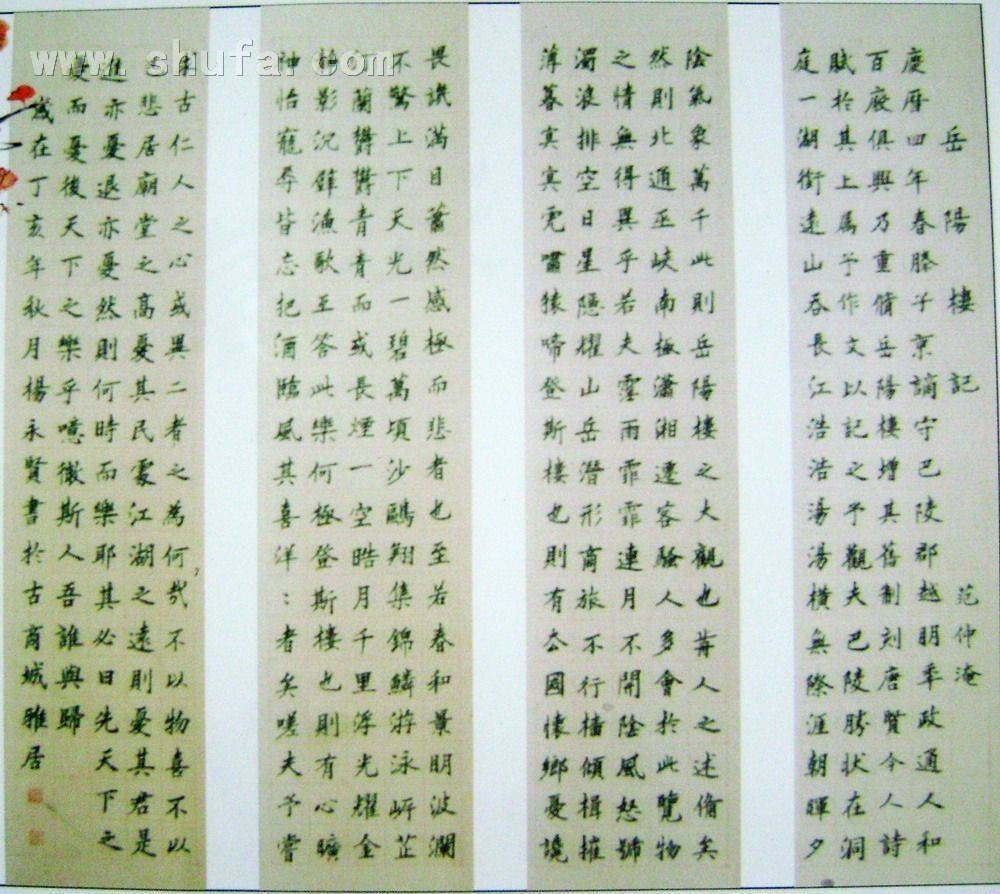 岳陽樓記 范仲淹
慶曆四年春滕子京謫守巴陵郡越明年政通人和
百廢俱興乃重脩岳陽樓增其舊制刻唐賢今人詩
賦於其上属予作文以記之予觀夫巴陵勝状在洞
庭一湖銜遠山吞長江浩浩湯湯橫無際涯朝暉夕
陰氣象萬千此則岳陽樓之大觀也前人之述俻矣
然則北通巫峽南極瀟湘遷客騷人多會於此覽物
之情無得異乎若夫霪雨霏霏連月不開陰風怒號
濁浪排空日星隱耀山岳潛形商旅不行檣傾楫摧
薄暮冥冥虎嘯猿啼登斯樓也則有去國懷鄉憂讒
畏譏滿目蕭然感極而悲者也至若春和景明波瀾
不驚上下天光一碧萬頃沙鷗翔集錦鱗游泳岸芷
汀蘭欝欝青青而或長煙一空皓月千里浮光耀金
靜影沉璧漁歌互答此樂何極登斯樓也則有心曠
神怡寵辱皆忘把酒臨風其喜洋：者矣嗟夫予嘗
求古仁人之心或異二者之為何哉不以物喜不以
己悲居廟堂之高憂其民處江湖之遠則憂其君是
進亦憂退亦憂然則何時而樂耶其必曰先天下之
憂而憂後天下之樂乎噫微斯人吾誰與歸
歲在丁亥年秋月楊永賢書於古商城雅居
www.shufai.com